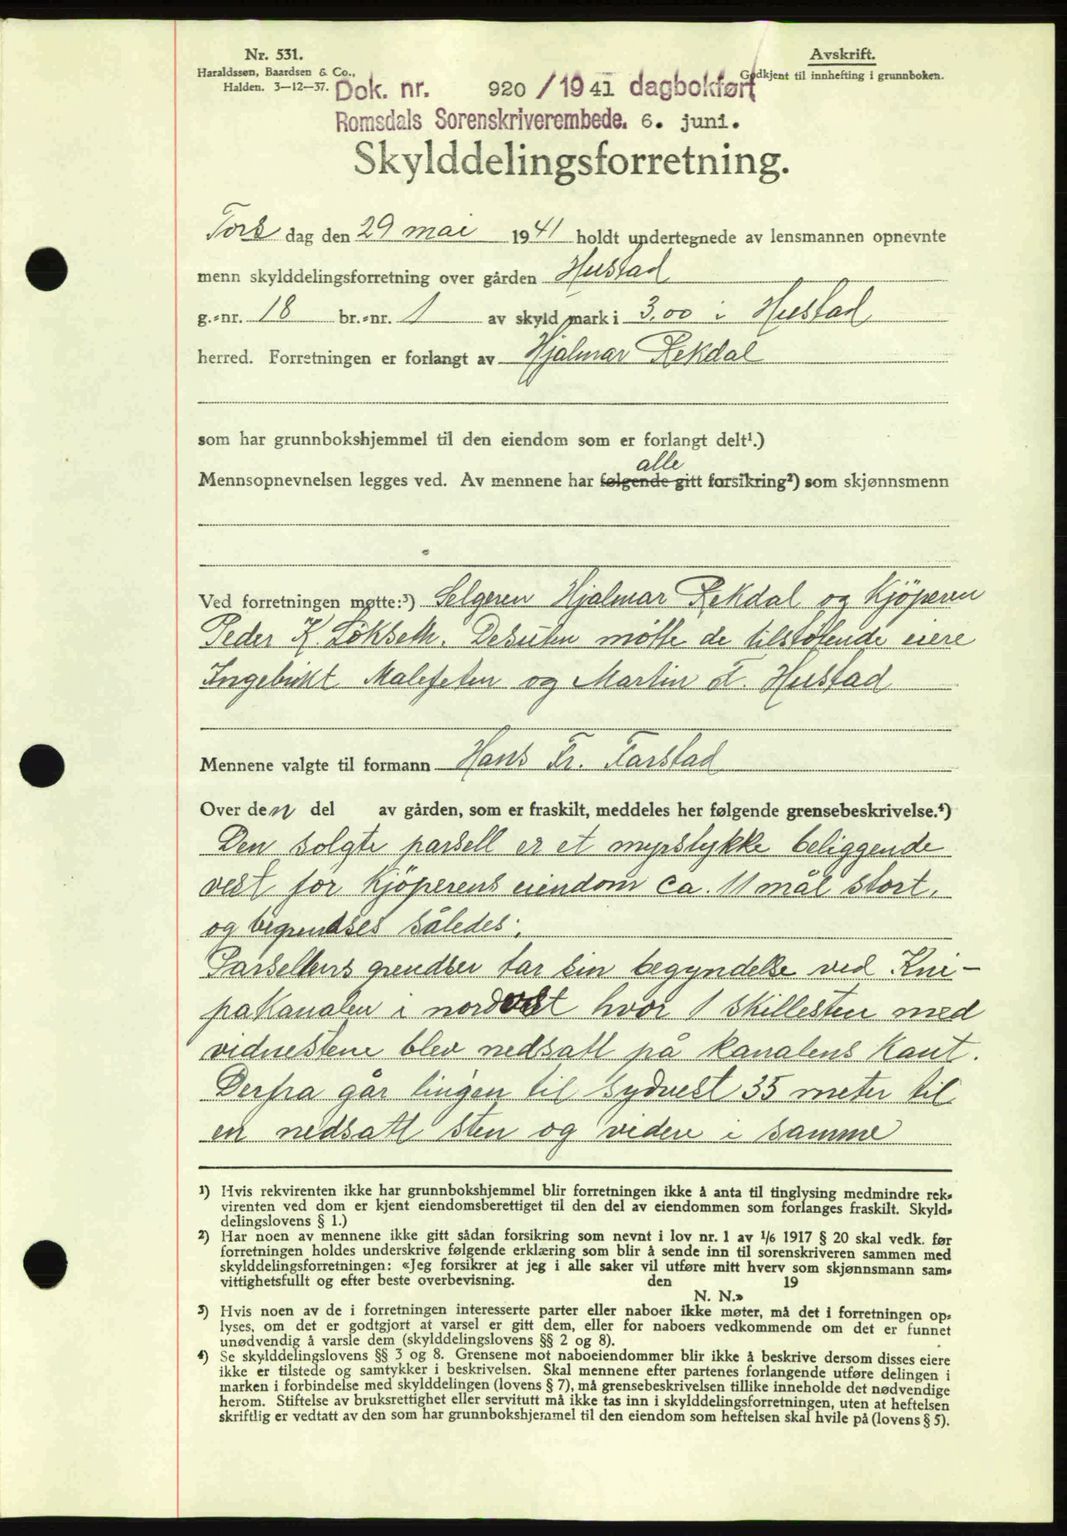 Nr. 531.
Haraldssøn, Baardsen & Co.,
Halden. 3—12—37.
Avskrift.
Godkjent til innhefting i grunnboken.
Dok. nr. 920 / 1941 dagbokført
Romsdals Sorenskriverembede. 6. juni.
Skylddelingsforretning.
Tors dag den 29 mai 1941 holdt undertegnede av lensmannen opnevnte
menn skylddelingsforretning over gården Hustad
g.-nr. 18 br.-nr. 1 av skyld mark i 3,00 i Hustad
herred. Forretningen er forlangt av Hjalmar Rekdal
som har grunnbokshjemmel til den eiendom som er forlangt delt¹.)
alle
Mennsopnevnelsen legges ved. Av mennene har følgende gitt forsikring²) som skjønnsmenn
Ved forretningen møtte:³) Selgeren Hjalmar Rekdal og Kjöperen
Peder K. Løkseth. Desuten møtte de tilstøtende eiere
Ingebrikt Malefeten og Martin T. Hustad
Mennene valgte til formann Hans Fr. Farstad
Over den del av gården, som er fraskilt, meddeles her følgende grensebeskrivelse.⁴)
Den solgte parsell er et myrstykke beliggende
vest for Kjöperens eiendom ca. 11 mål stort,
og begrendses således:
Parsellens grendser tar sin begyndelse ved Kni-
pakanalen i nordvest hvor 1 skillesten med
vidnestene blev nedsatt på kanalens kant.
Derfra går lingen til sydvest 35 meter til
en nedsatt sten og videre i samme
¹) Hvis rekvirenten ikke har grunnbokshjemmel blir forretningen ikke å anta til tinglysing medmindre rek-
virenten ved dom er kjent eiendomsberettiget til den del av eiendommen som forlanges fraskilt. Skyld-
delingslovens § 1.)
²) Har noen av mennene ikke gitt sådan forsikring som nevnt i lov nr. 1 av 1/6 1917 § 20 skal vedk. før
forretningen holdes underskrive følgende erklæring som blir å sende inn til sorenskriveren sammen med
skylddelingsforretningen: «Jeg forsikrer at jeg i alle saker vil utføre mitt hverv som skjønnsmann sam-
vittighetsfullt og efter beste overbevisning. den 19
N. N.»
³) Hvis noen av de i forretningen interesserte parter eller naboer ikke møter, må det i forretningen op-
lyses, om det er godtgjort at varsel er gitt dem, eller for naboers vedkommende om det er funnet
unødvendig å varsle dem (skylddelingslovens §§ 2 og 8).
⁴) Se skylddelingslovens §§ 3 og 8. Grensene mot naboeiendommer blir ikke å beskrive dersom disses eiere
ikke er tilstede og samtykker i beskrivelsen. Skal mennene efter partenes forlangende utføre delingen i
marken i forbindelse med skylddelingen (lovens § 7), må grensebeskrivelsen tillike inneholde det nødvendige
herom. Stiftelse av bruksrettighet eller servitutt må ikke tas inn i skylddelingsforretningen, uten at heftelsen
skriftlig er vedtatt av den som har grunnbokshjemmel til den eiendom som heftelsen skal hvile på (lovens § 5).